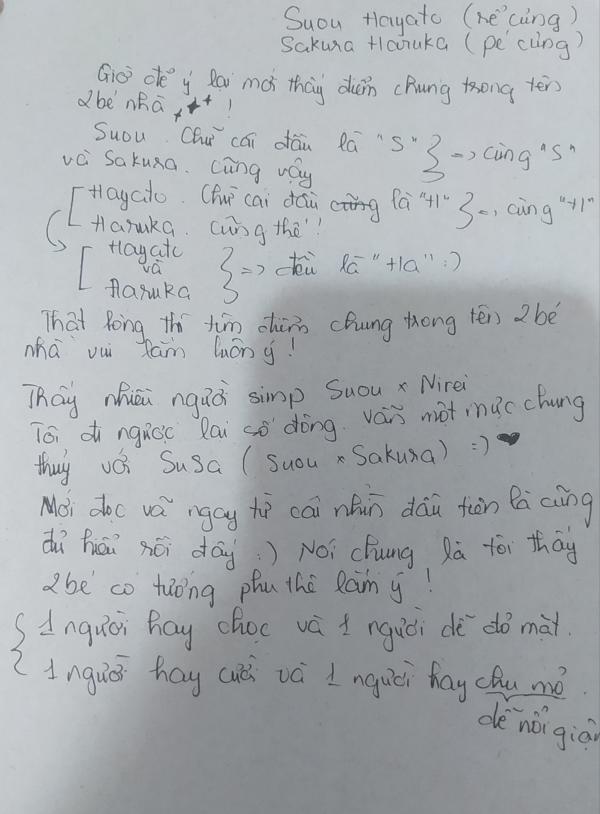 Suou Hayato (rể cứng)
Sakura Haruka (pé cưng)
Giờ để ý lại mới thấy điểm chung trong tên
2 bé nhà !
Suou. Chữ cái đầu là "S" } => cùng "S"
và Sakura. cũng vậy
[ Hayato. Chữ cái đầu cũng là "H" } => cùng "H"
Haruka. cũng thế !
[ Hayato
và } => đều là "Ha" :)
Haruka
Thật lòng thì tìm điểm chung trong tên 2 bé
nhà vui lắm luôn ý !
Thấy nhiều người simp Suou × Nirei
Tôi đi ngược lại số đông. vẫn một mực chung
thuỷ với SuSa ( Suou × Sakura) =:) ♥
Mới đọc và ngay từ cái nhìn đầu tiên là cũng
đủ hiểu rồi đấy :) Nói chung là tôi thấy
2 bé có tướng phu thê lắm ý !
{ 1 người hay chọc và 1 người dễ đỏ mặt.
1 người hay cười và 1 người hay chu mỏ.
dễ nổi giận